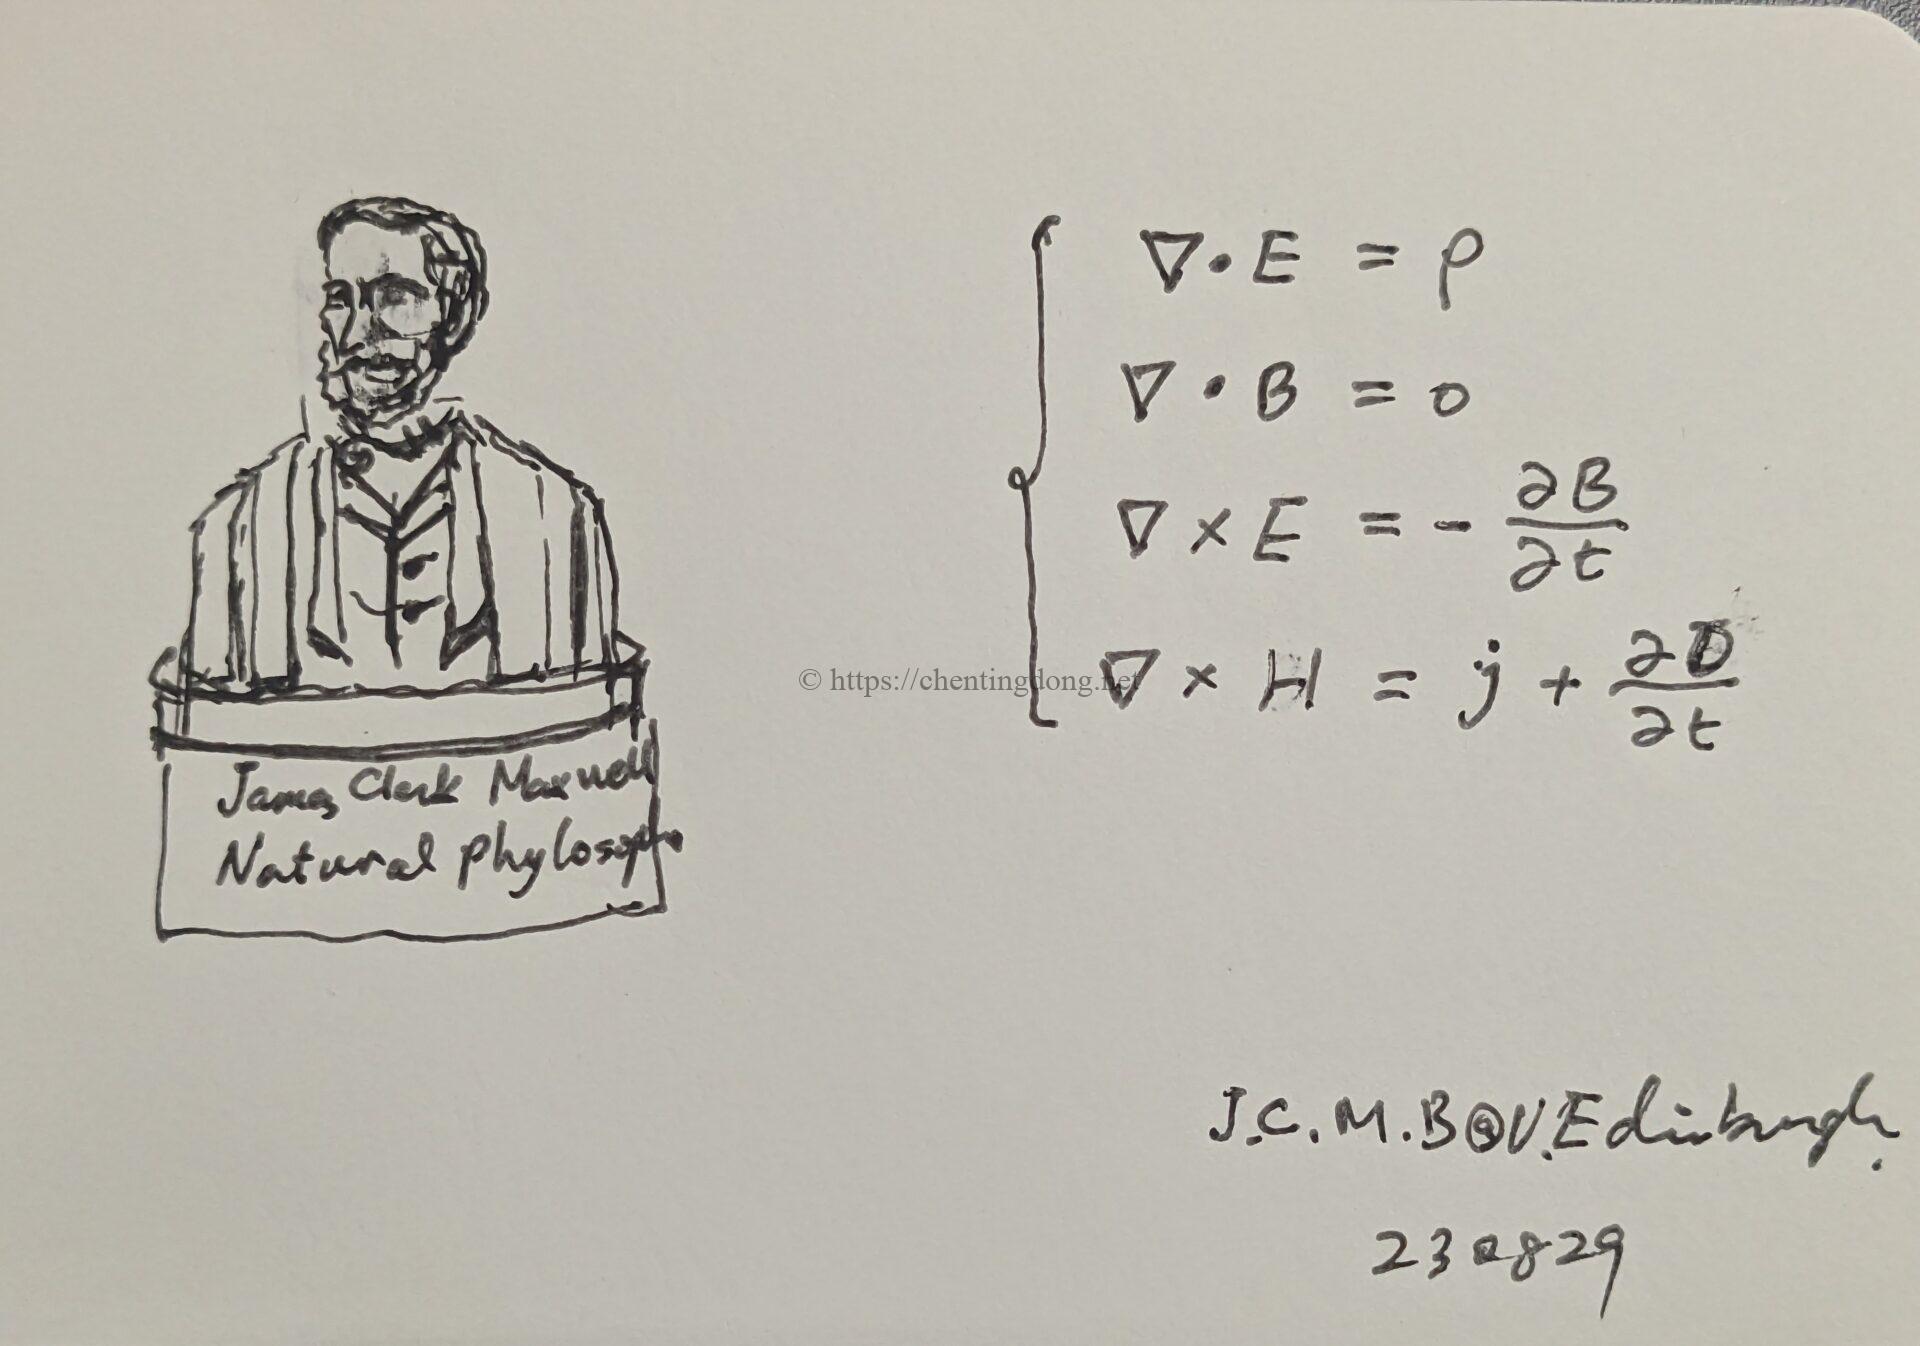 James Clerk Maxwell
Natural phylosoph
∇·E = ρ
∇·B = 0
∇×E = -∂B/∂t
∇×H = j + ∂D/∂t
© https://chentingdong.net
J.C.M.B@U.Edinburgh.
230829